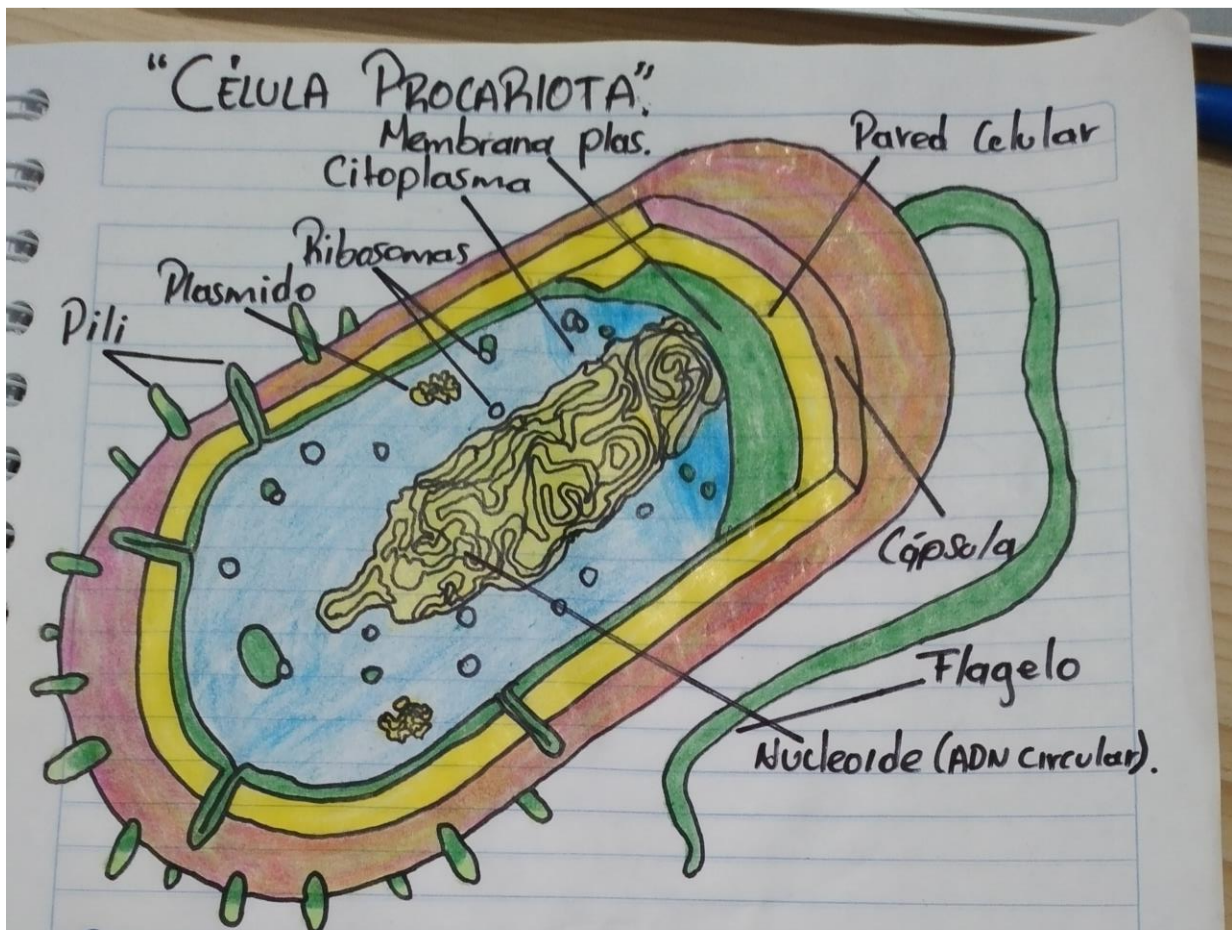 "CÉLULA PROCARIOTA".
Membrana plas.
Pared Celular
Citoplasma
Ribosomas
Plasmido
Pili
Cápsula
Flagelo
Nucleoide (ADN Circular).